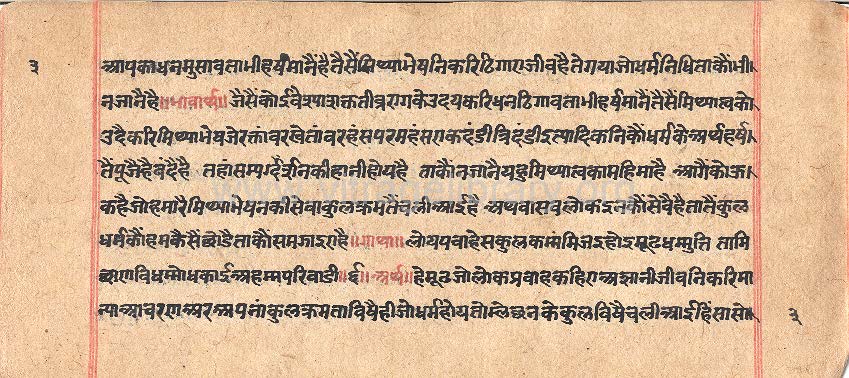 ३
आपकाधनमुसावताभीहर्षमानैंहैतैसैंमिथ्याभेषनिकरिठिगाएजीवहैतेगयाजोधर्मनिधिताकौंभी।
नजानैहै॥भावार्थ॥जैसैंकोईवेश्याशक्ततीवरागकेउदयकरिधनठिगावताभीहर्षमानैंतैसैंमिथ्यात्वको
उदैकरिमिथ्याभेषजेरक्तांवरस्वेतांवरहंसपरमहंसराकदंडीत्रिदंडीइत्यादिकनिकौंधर्मकेअर्थहर्षा
तैंपूजैहैबंदैहै तहांसम्यग्दर्शनकीहानीहोयहै ताकौंनजानैयहुमिथ्यात्वकामहिमाहै आगैंकोऊ।
कहैजोहमारैमिथ्याभेषनकीसेवाकुलक्रमतैंचलीआईहै अथवासवलोकइनकौंसेवैहैतातैंकुल
धर्मकौंहमकैसैंछोडैताकौंसमजाईएहै॥गाथा॥लोयपवाहेसकुलकमंमिजइहोइमूढधम्मुत्ति तामि
छाणविधम्मोधकाईअहम्मपरिवाडी॥६॥अर्थ॥हेमूढजोलोकप्रवाहकहिएअज्ञानीजीवनिकरिमा
न्याआचरणअरअपनांकुलक्रमताविषैहीजोधर्महोयतोम्लेछनकेकुलविषैचलीआईहिंसासो॥
३